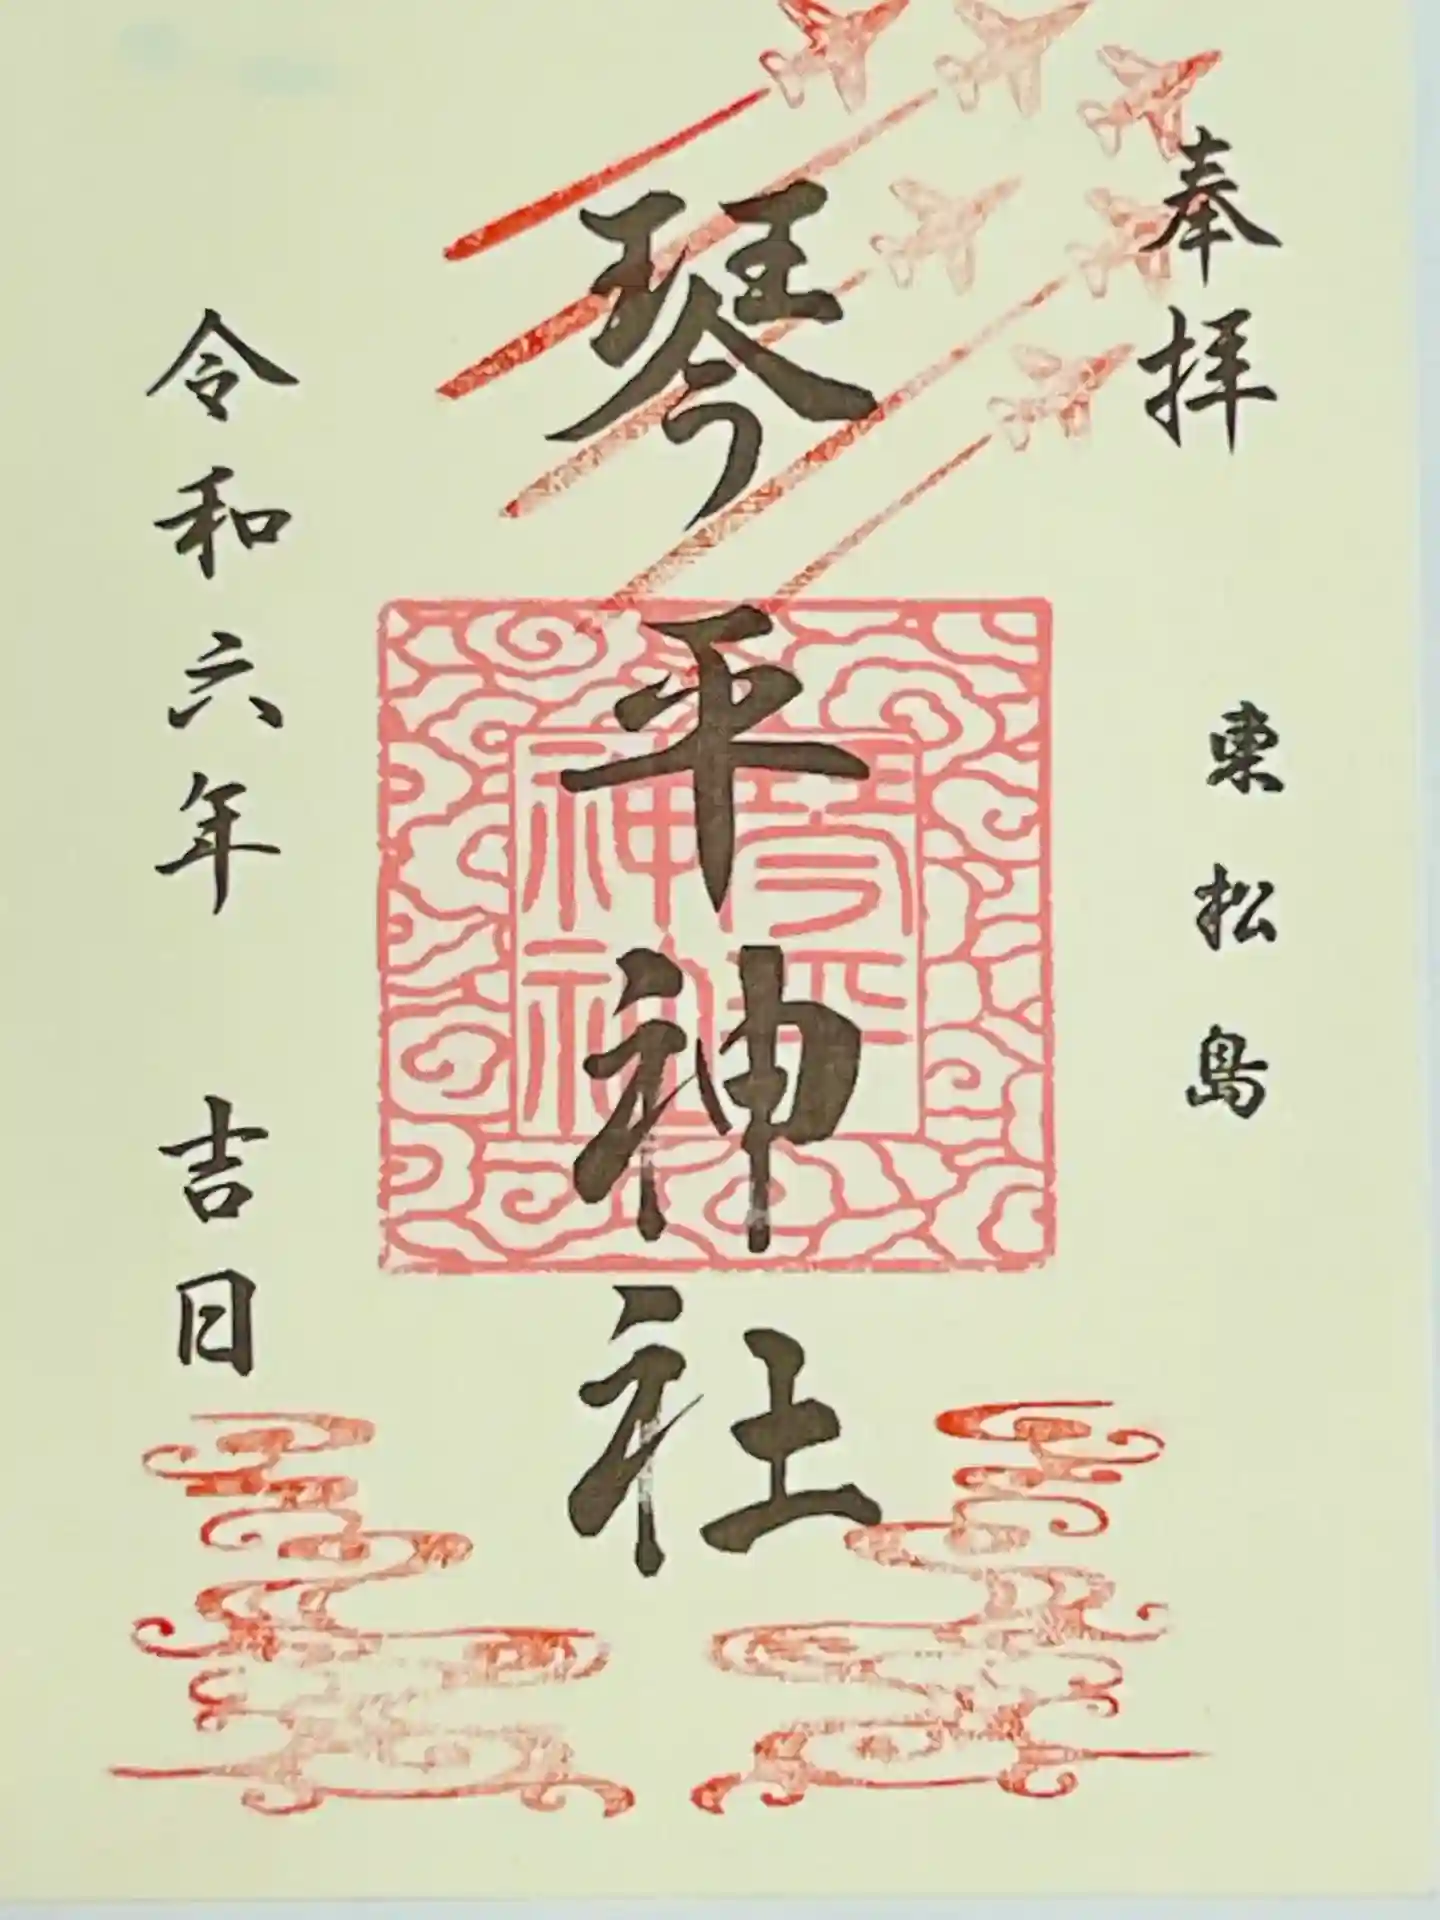 奉拝
東松島
琴平神社
琴平神社
令和六年 吉日